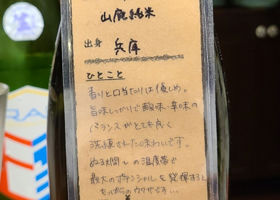 山廃純米
出身 兵庫
ひとこと
香りと口当たりは優しめ。
旨味しっかりで酸味、辛味の
バランスがとても良く
洗練された味わいです。
ぬる燗〜の温度帯で
最大のポテンシャルを発揮すると